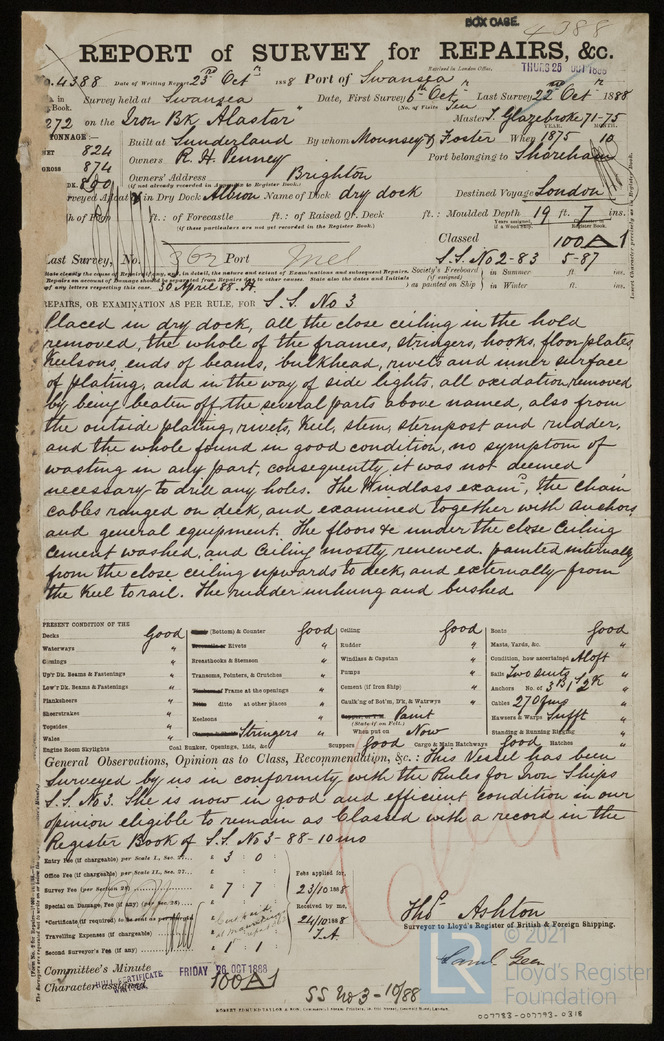 BOX CASE.
4388
REPORT of SURVEY for REPAIRS, &c.
Received in London Office, THURS 25 OCT 1888
No. 4388 Date of Writing Report 23rd Octr 1888 Port of Swansea
Survey held at Swansea Date, First Survey 6th Octr Last Survey 22nd Octr 1888
(No. of Visits Ten)
272 on the Iron Bk "Alastar" Master J. Glazebroke 71-75
TONNAGE:—
NET 824 Built at Sunderland By whom Mounsey & Foster When 1875 10
YEAR. MONTH.
GROSS 874 Owners R. H. Penney Port belonging to Shoreham
Owners' Address Brighton
(if not already recorded in Appendix to Register Book.)
890
in Dry Dock Albion Name of Dock dry dock Destined Voyage London
ft.: of Forecastle ft.: of Raised Qr. Deck ft.: Moulded Depth 19 ft. 7 ins.
(if these particulars are not yet reported in the Register Book.)
Classed 100 A 1
Last Survey, No. 362 Port Mel S.S. No 2-83 5-87
30 April 88.
Society's Freeboard (if assigned) as painted on Ship in Summer ft. ins.
in Winter ft. ins.
REPAIRS, OR EXAMINATION AS PER RULE, FOR S.S. No 3
Placed in dry dock, all the close ceiling in the hold
removed, the whole of the frames, stringers, hooks, floor plates,
Keelsons, ends of beams, bulkhead, rivets and inner surface
of plating, and in the way of side lights, all oxidation removed
by being beaten off the several parts above named, also from
the outside plating, rivets, Keel, stem, sternpost and rudder,
and the whole found in good condition, no symptom of
wasting in any part, consequently it was not deemed
necessary to drill any holes. The Windlass examd, the chain
cables ranged on deck, and examined together with anchors
and general equipment. The floors &c under the close ceiling
cement washed, and ceiling mostly renewed. painted internally
from the close ceiling upwards to deck, and externally from
the Keel to rail. The rudder unhung and bushed
PRESENT CONDITION OF THE
Decks Good
Waterways "
Comings "
Up'r Dk. Beams & Fastenings "
Low'r Dk. Beams & Fastenings "
Planksheers "
Sheerstrakes "
Topsides "
Wales "
Engine Room Skylights
(Bottom) & Counter Good
Rivets "
Breasthooks & Stemson "
Transoms, Pointers, & Crutches "
Frame at the openings "
ditto at other places "
Keelsons "
Stringers "
Coal Bunker, Openings, Lids, &c.
Ceiling Good
Rudder "
Windlass & Capstan "
Pumps "
Cement (if Iron Ship) "
Caulk'ng of Bot'm, D'k, & Watrwys "
Paint
(State if on Felt.)
When put on Now
Scuppers Good Cargo & Main Hatchways Good Hatches "
Boats Good
Masts, Yards, &c. "
Condition, how ascertained Aloft
Sails Two suits
Anchors No. of 3 B 1 S 2 K
Cables 270 fms
Hawsers & Warps Sufft
Standing & Running Rigging "
General Observations, Opinion as to Class, Recommendation, &c.: This Vessel has been
surveyed by us in conformity with the Rules for Iron Ships
S.S. No 3. She is now in good and efficient condition in our
opinion eligible to remain as Classed with a record in the
Register Book of S.S. No 3-88-10mo
Entry Fee (if chargeable) per Scale I., Sec. 27... £ 3 : 0 :
Office Fee (if chargeable) per Scale II., Sec. 27...
Survey Fee (per Section 28) £ 7 : 7 :
Special on Damage, Fee (if any) (per Sec. 28)
*Certificate (if required) to be sent as per
Travelling Expenses (if chargeable)
Second Surveyor's Fee (if any) £ 1 : 1
Fees applied for, 23/10 1888
Received by me, 24/10 1888
T.A.
Thos Ashton
Surveyor to Lloyd's Register of British & Foreign Shipping.
Saml Geen
Committee's Minute FRIDAY 26 OCT 1888
Character assigned 100 A 1
CERTIFICATE WRITTEN
SS No 3-10/88
© 2021
Lloyd's Register
Foundation
LR
007783-007793-0318